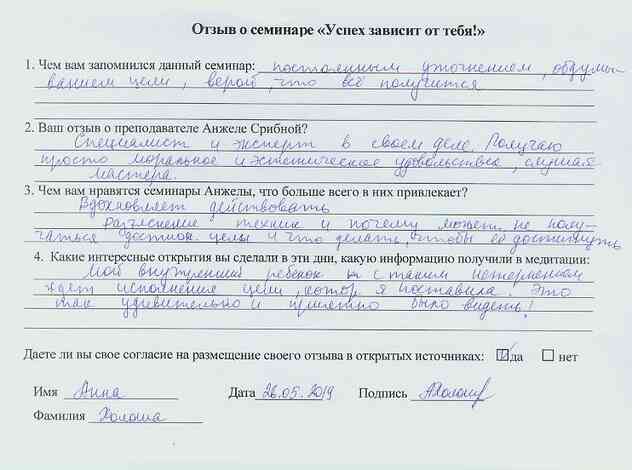 Отзыв о семинаре «Успех зависит от тебя!»
1. Чем вам запомнился данный семинар: постоянным уточнением, обдумы-
ванием цели, верой, что всё получится
2. Ваш отзыв о преподавателе Анжеле Срибной?
Специалист и эксперт в своем деле. Получаю
просто моральное и эстетическое удовольствие, слушая
мастера.
3. Чем вам нравятся семинары Анжелы, что больше всего в них привлекает?
Вдохновляет действовать
Разъяснение техник и почему может не полу-
чаться достиж. целы и что делать, чтобы её достигнуть
4. Какие интересные открытия вы сделали в эти дни, какую информацию получили в медитации:
Мой внутренний ребенок с таким нетерпением
ждет исполнение цели, котор. я поставила. Это
так удивительно и приятно было видеть!
Даете ли вы свое согласие на размещение своего отзыва в открытых источниках: да нет
Имя Анна Дата 26.05.2019 Подпись АХолошу
Фамилия Холоша